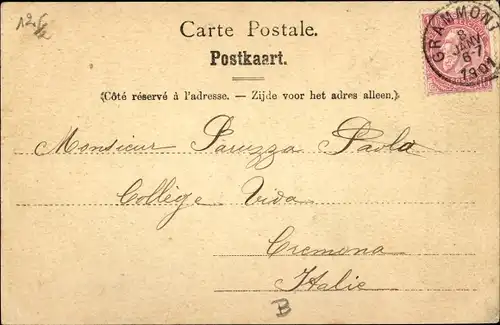 12.6/2
Carte Postale.
Postkaart.
(Côté réservé à l'adresse. — Zijde voor het adres alleen.)
GRAMMONT
JANV
6-7
1901
Monsieur Paruzza Paolo
Collège Vida
Cremona
Italie
B